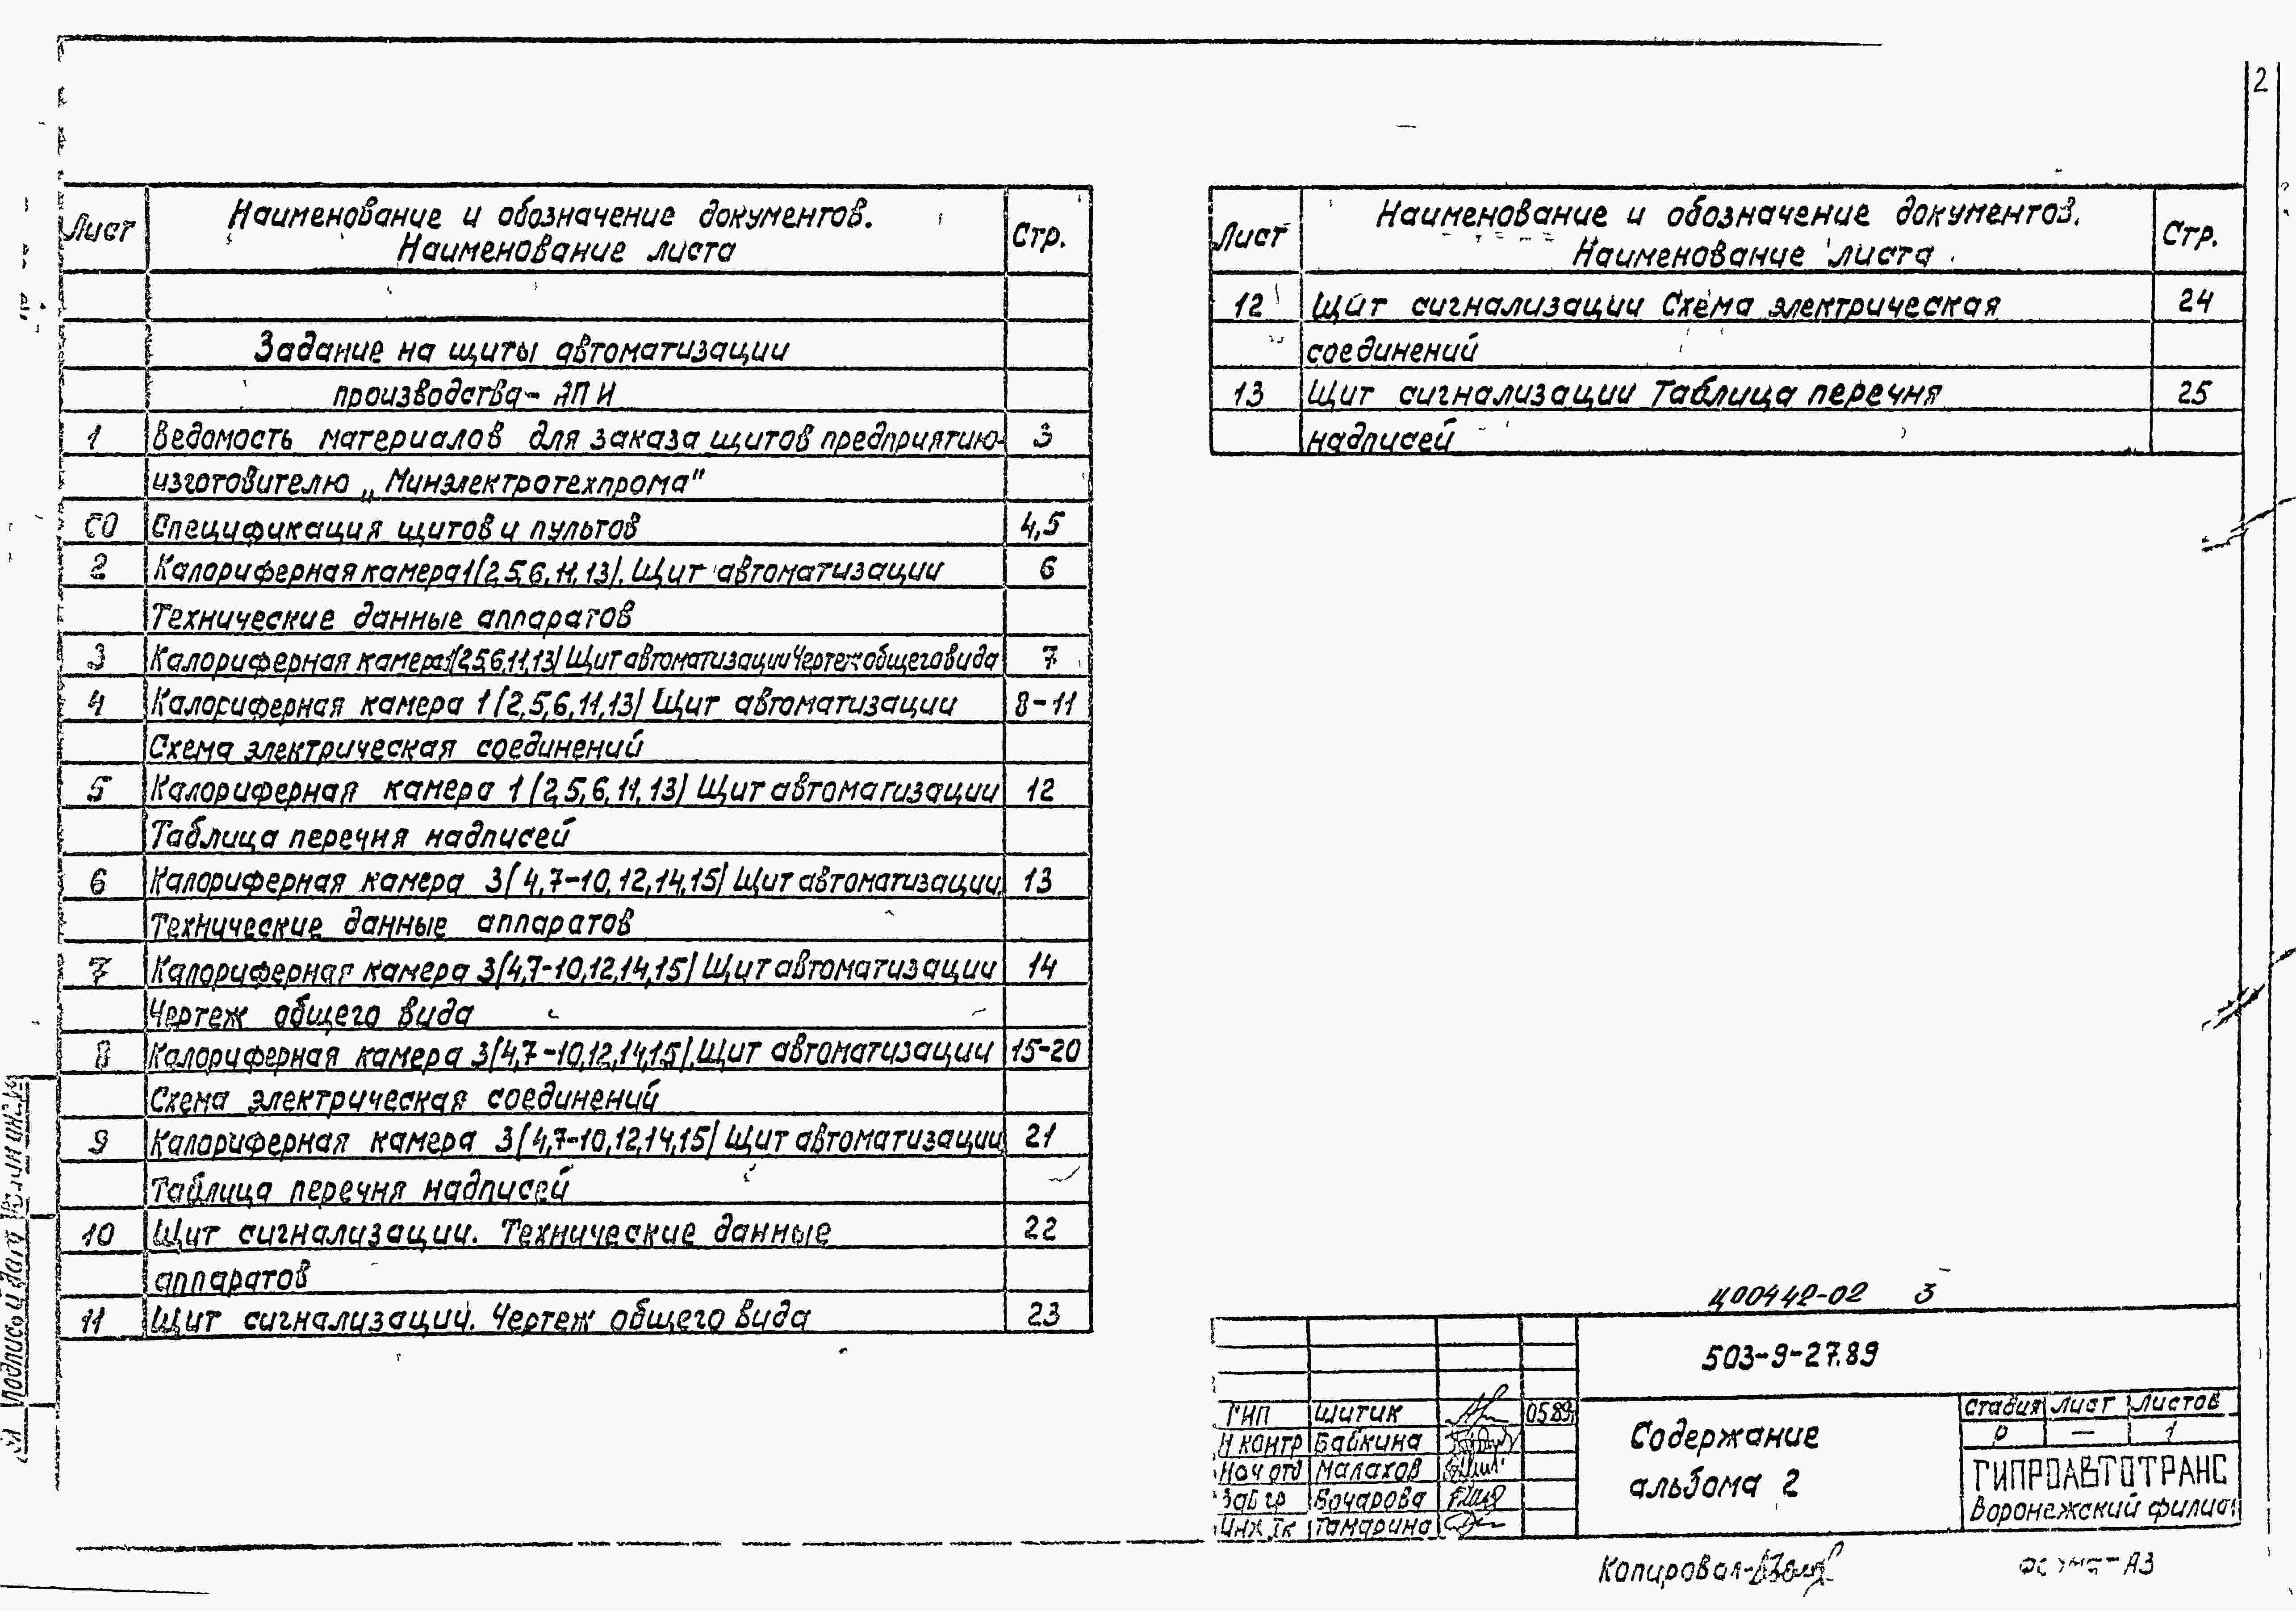 2
Лист Наименование и обозначение документов. Стр.
Наименование листа
Задание на щиты автоматизации
производства- АПИ
1 Ведомость материалов для заказа щитов предприятию- 3
изготовителю „Минэлектротехпрома"
СО Спецификация щитов и пультов 4,5
2 Калориферная камера 1(2,5,6,11,13). Щит автоматизации 6
Технические данные аппаратов
3 Калориферная камера 1(2,5,6,11,13) Щит автоматизации Чертеж общего вида 7
4 Калориферная камера 1(2,5,6,11,13) Щит автоматизации 8-11
Схема электрическая соединений
5 Калориферная камера 1(2,5,6,11,13) Щит автоматизации 12
Таблица перечня надписей
6 Калориферная камера 3(4,7-10,12,14,15) Щит автоматизации. 13
Технические данные аппаратов
7 Калориферная камера 3(4,7-10,12,14,15) Щит автоматизации 14
Чертеж общего вида
8 Калориферная камера 3(4,7-10,12,14,15). Щит автоматизации 15-20
Схема электрическая соединений
9 Калориферная камера 3(4,7-10,12,14,15) Щит автоматизации 21
Таблица перечня надписей
10 Щит сигнализации. Технические данные 22
аппаратов
11 Щит сигнализации. Чертеж общего вида 23
Лист Наименование и обозначение документов. Стр.
Наименование листа
12 Щит сигнализации Схема электрическая 24
соединений
13 Щит сигнализации Таблица перечня 25
надписей
Ц00442-02 3
503-9-27.89
ГИП Шитик 05.89г
Н контр Байкина
Нач отд Малахов
Зав гр Бочарова
Инж Iк Тамарина
Содержание
альбома 2
Стадия Лист Листов
Р — 1
ГИПРОАВТОТРАНС
Воронежский филиал
Копировал-
Формат-А3
Подпись и дата